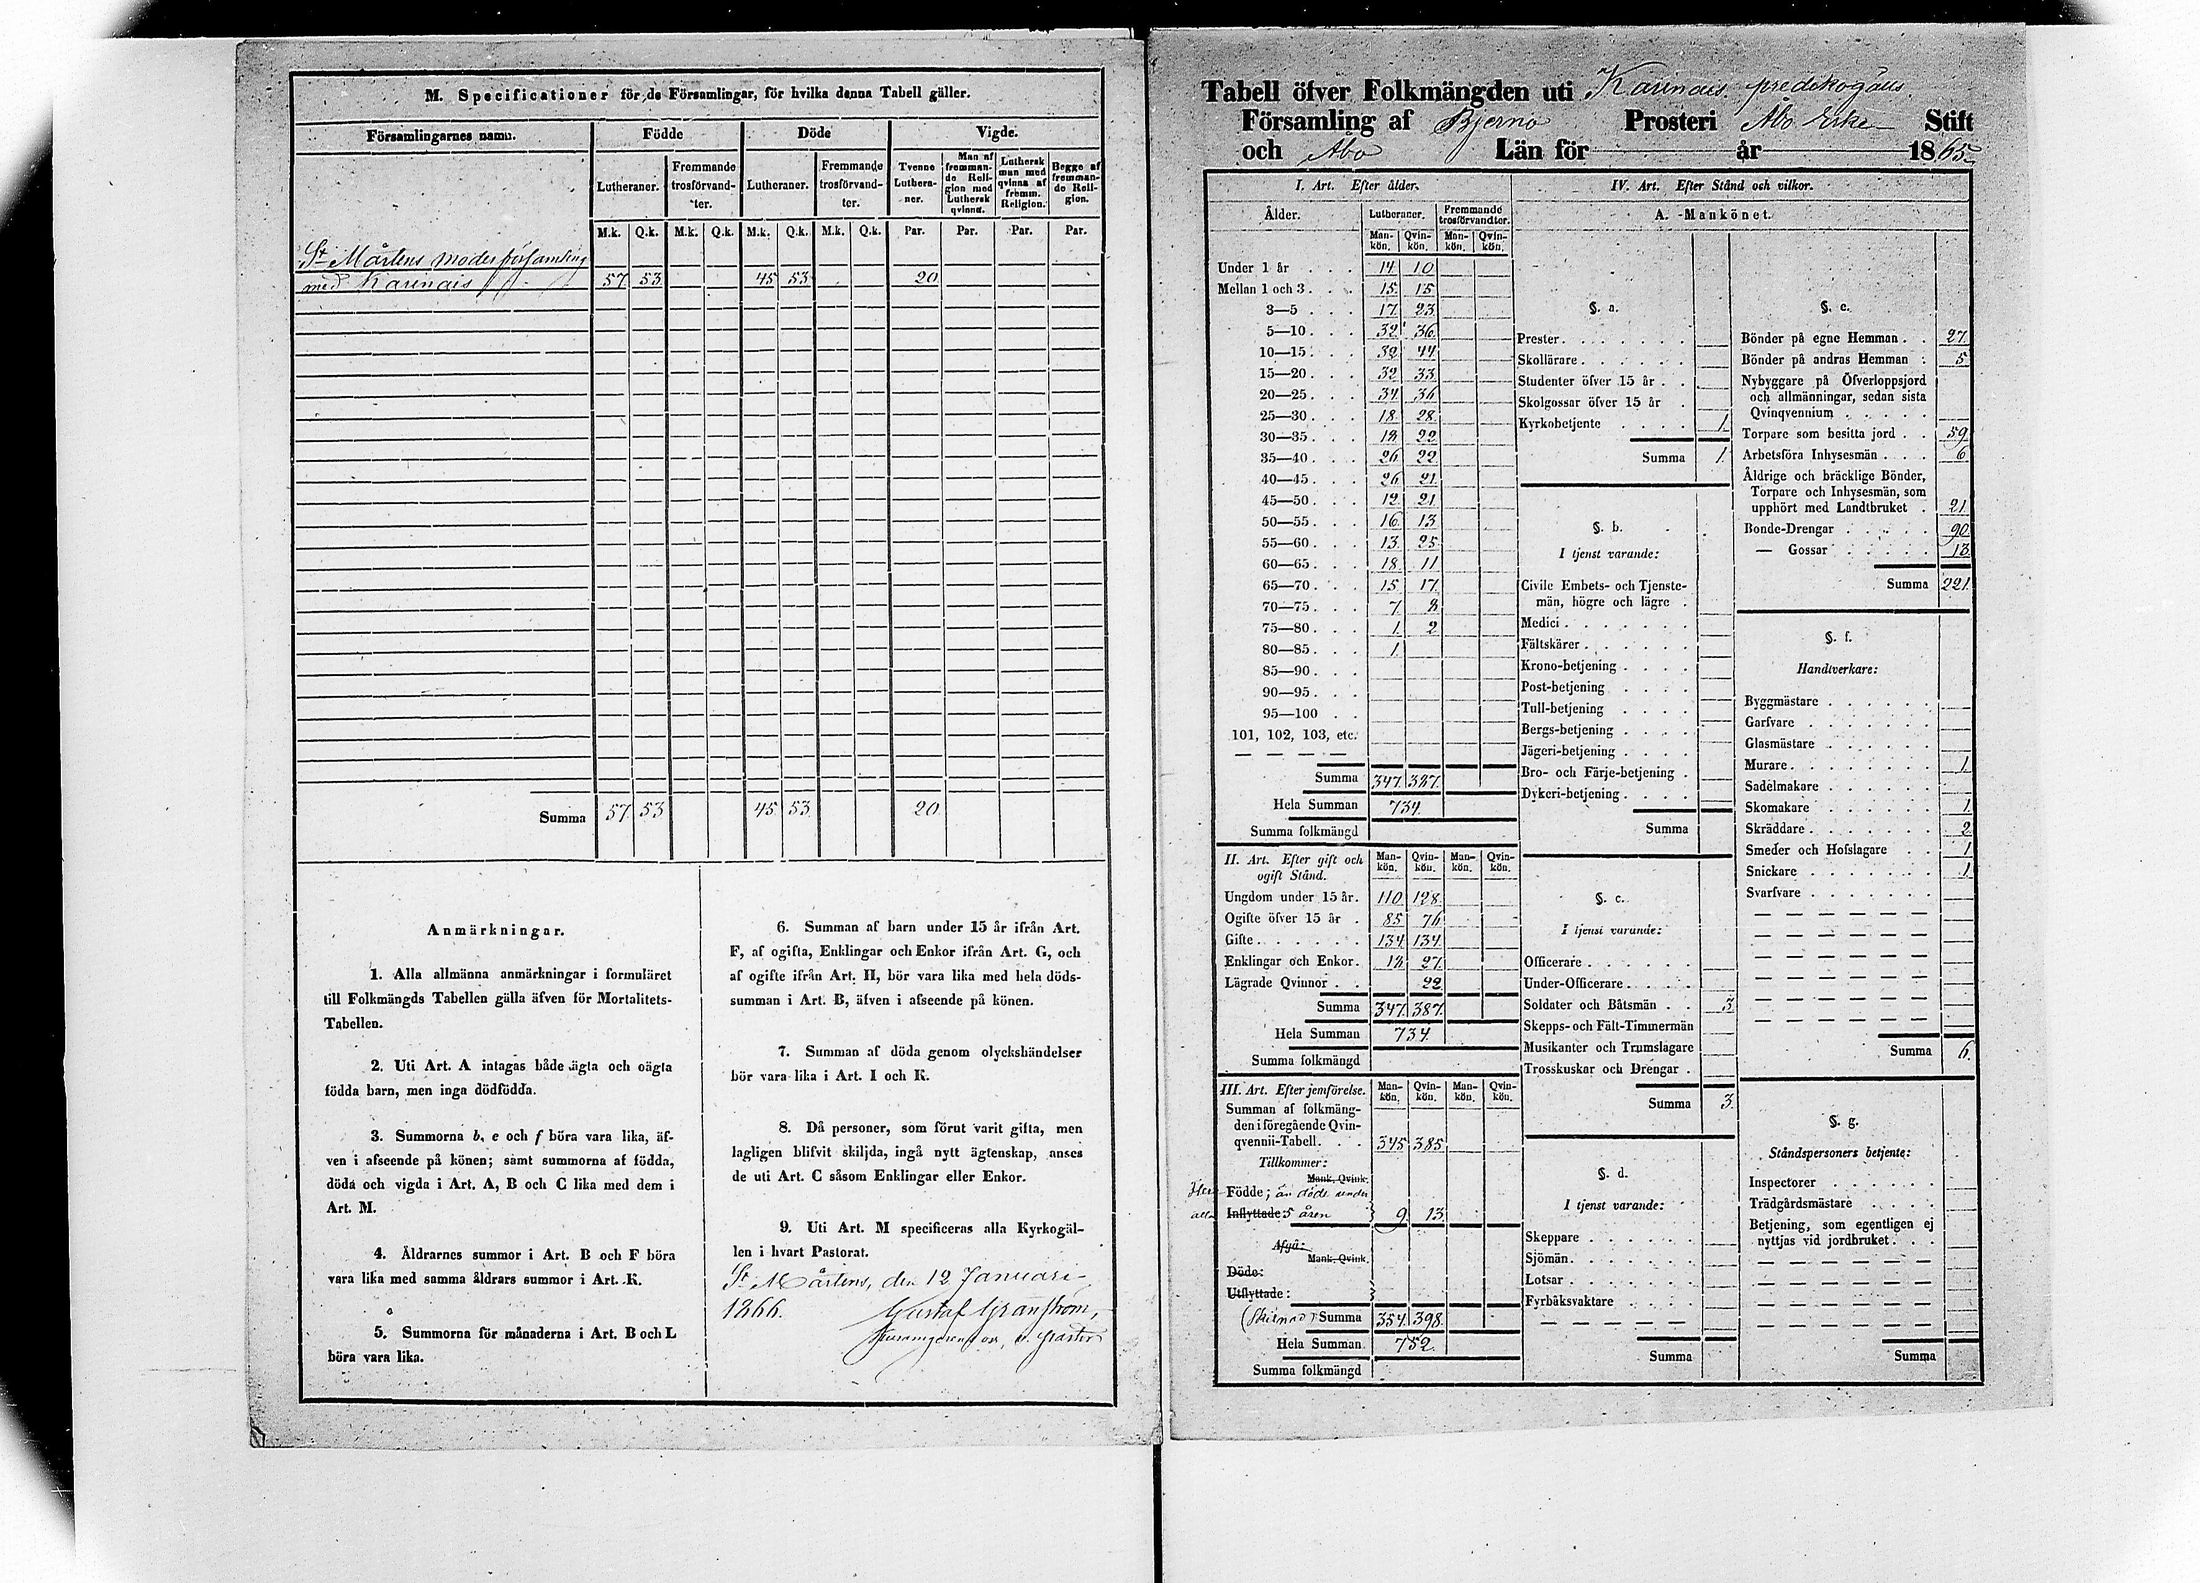 M. Specificationer för de Församlingar, för hvilka denna Tabell gäller.
Församlingarnes namn. Födde Döde Vigde.
Lutheraner. Fremmande trosförvandter. Lutheraner. Fremmande trosförvandter. Tvenne Lutheraner. Man af fremmande Religion med Luthersk qvinna. Luthersk man med qvinna af fremm. Religion. Begge af fremmande Religion.
M.k. Q.k. M.k. Q.k. M.k. Q.k. M.k. Q.k. Par. Par. Par. Par.
St Mårtens moderförsamling
med Karinais 57 53 45 53 20
Summa 57 53 45 53 20
Anmärkningar.
1. Alla allmänna anmärkningar i formuläret
till Folkmängds Tabellen gälla äfven för Mortalitets-
Tabellen.
2. Uti Art. A intagas både ägta och oägta
födda barn, men inga dödfödda.
3. Summorna b, e och f böra vara lika, äf-
ven i afseende på könen; samt summorna af födda,
döda och vigda i Art. A, B och C lika med dem i
Art. M.
4. Åldrarnes summor i Art. B och F böra
vara lika med samma åldrars summor i Art. K.
5. Summorna för månaderna i Art. B och L
böra vara lika.
6. Summan af barn under 15 år ifrån Art.
F, af ogifta, Enklingar och Enkor ifrån Art. G, och
af ogifte ifrån Art. H, bör vara lika med hela döds-
summan i Art. B, äfven i afseende på könen.
7. Summan af döda genom olyckshändelser
bör vara lika i Art. I och K.
8. Då personer, som förut varit gifta, men
lagligen blifvit skiljda, ingå nytt ägtenskap, anses
de uti Art. C såsom Enklingar eller Enkor.
9. Uti Art. M specificeras alla Kyrkogäl-
len i hvart Pastorat.
St Mårtens, den 12 Januari
1866. Gustaf Granström,
Tabell öfver Folkmängden uti Karinais predikogälls
Församling af Bjerno Prosteri Åbo Erke Stift
och Åbo Län för år 1865
I. Art. Efter ålder.
Ålder. Lutheraner. Fremmande trosförvandter.
Man-kön. Qvin-kön. Man-kön. Qvin-kön.
Under 1 år 14 10
Mellan 1 och 3 15 15
3—5 17 23
5—10 32 36
10—15 32 44
15—20 32 33
20—25 34 36
25—30 18 28
30—35 18 22
35—40 26 22
40—45 26 21
45—50 12 21
50—55 16 13
55—60 13 25
60—65 18 11
65—70 15 17
70—75 7 8
75—80 1 2
80—85 1
85—90
90—95
95—100
101, 102, 103, etc.
Summa 347 387
Hela Summan 734
Summa folkmängd
II. Art. Efter gift och ogift Stånd. Man-kön. Qvin-kön. Man-kön. Qvin-kön.
Ungdom under 15 år. 110 128
Ogifte öfver 15 år 85 76
Gifte 134 134
Enklingar och Enkor. 18 27
Lägrade Qvinnor 22
Summa 347 387
Hela Summan 734
Summa folkmängd
III. Art. Efter jemförelse. Man-kön. Qvin-kön. Man-kön. Qvin-kön.
Summan af folkmäng-
den i föregående Qvin-
qvennii-Tabell. 345 385
Tillkommer:
Mank. Qvink.
Flere Födde; än döde under
alla Inflyttade: 5 åren 9 13
Afgå:
Mank. Qvink.
Döde:
Utflyttade:
(Skilnad) Summa 354 398
Hela Summan 752
Summa folkmängd
IV. Art. Efter Stånd och vilkor.
A. Mankönet.
§. a.
Prester
Skollärare
Studenter öfver 15 år
Skolgossar öfver 15 år
Kyrkobetjente 1
Summa 1
§. b.
I tjenst varande:
Civile Embets- och Tjenste-
män, högre och lägre
Medici
Fältskärer
Krono-betjening
Post-betjening
Tull-betjening
Bergs-betjening
Jägeri-betjening
Bro- och Färje-betjening
Dykeri-betjening
Summa
§. c.
I tjenst varande:
Officerare
Under-Officerare
Soldater och Båtsmän 3
Skepps- och Fält-Timmermän
Musikanter och Trumslagare
Trosskuskar och Drengar
Summa 3
§. d.
I tjenst varande:
Skeppare
Sjömän
Lotsar
Fyrbåksvaktare
Summa
§. e.
Bönder på egne Hemman 27
Bönder på andras Hemman 5
Nybyggare på Öfverloppsjord
och allmänningar, sedan sista
Qvinqvennium
Torpare som besitta jord 59
Arbetsföra Inhysesmän 6
Åldrige och bräcklige Bönder,
Torpare och Inhysesmän, som
upphört med Landtbruket 21
Bonde-Drengar 90
— Gossar 13
Summa 221
§. f.
Handtverkare:
Byggmästare
Garfvare
Glasmästare
Murare 1
Sadelmakare
Skomakare 1
Skräddare 2
Smeder och Hofslagare 1
Snickare 1
Svarfvare
Summa 6
§. g.
Ståndspersoners betjente:
Inspectorer
Trädgårdsmästare
Betjening, som egentligen ej
nyttjas vid jordbruket
Summa